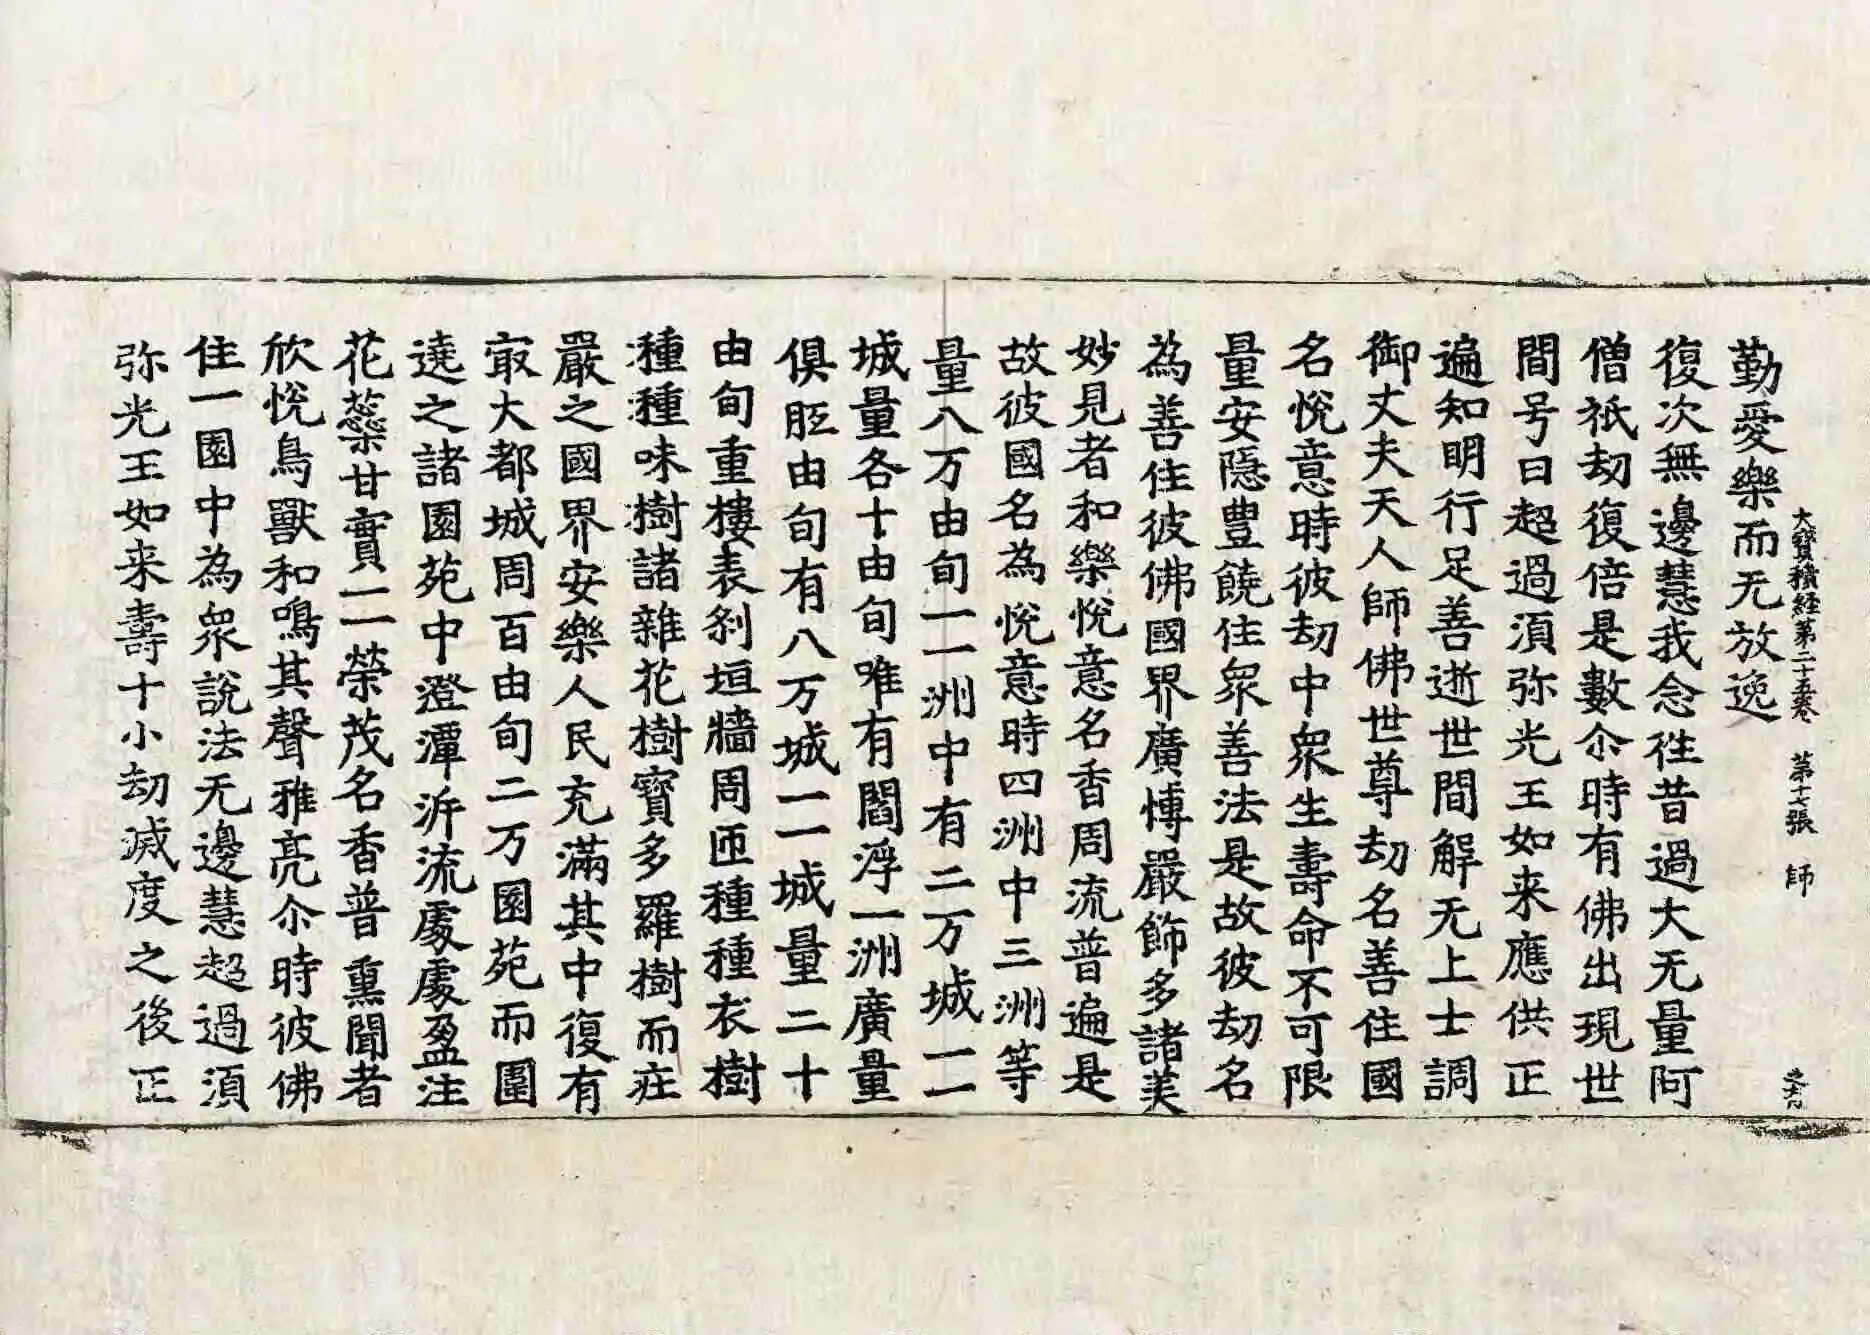 大寶積経第二十五卷　第十七張　師
勤愛樂而无放逸
復次無邊慧我念徃昔過大无量阿
僧祇劫復倍是數尒時有佛出現世
間号曰超過湏弥光王如来應供正
遍知明行足善逝世間解无上士調
御丈夫天人師佛世尊劫名善住國
名悅意時彼劫中衆生壽命不可限
量安隱豊饒住衆善法是故彼劫名
為善住彼佛國界廣愽嚴飾多諸美
妙見者和樂悅意名香周流普遍是
故彼國名為悅意時四洲中三洲等
量八万由旬一一洲中有二万城一一
城量各十由旬唯有閻浮一洲廣量
俱胝由旬有八万城一一城量二十
由旬重樓表刹垣牆周匝種種衣樹
種種味樹諸雜花樹寶多羅樹而疘
嚴之國界安樂人民充滿其中復有
㝡大都城周百由旬二万園苑而圍
遶之諸園苑中澄潭泝流處處盈注
花蘂甘實一一榮茂名香普熏聞者
欣悅鳥獸和鳴其聲雅亮尒時彼佛
住一園中為衆說法无邊慧超過湏
弥光王如来壽十小劫滅度之後正